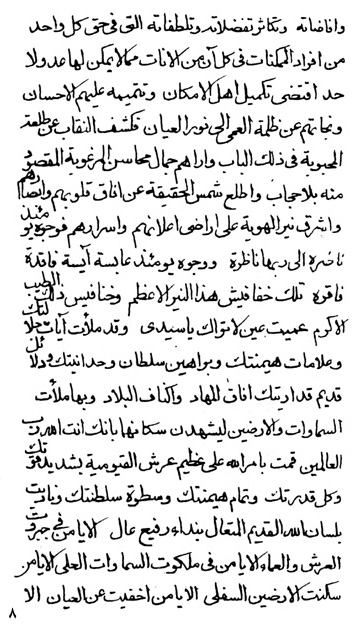 وافاضاته وتكاثر تفضلاته وتلطفاته التی فی حق كل واحد
من افراد الممكنات فی كل آن من الآنات مما لا يمكن لها عد ولا
حد اقتضی تكميل اهل الامكان وتتميمه عليهم الاحسان
ونجاتهم عن ظلمة العمی الی نور العيان فكشف النقاب عن طلعة
المحبوبة فی ذلك الباب واراهم جمال محاسن المرغوبة المقصود
منه بلا حجاب واطلع شمس الحقيقة عن افاق قلوبهم وابصارهم
واشرق نير الهوية علی اراضی اعلانهم واسرارهم فوجوه يومئذ
ناضرة الی ربها ناظرة ووجوه يومئذ عابسة آيسة فاقدة
فاقوه تلك خفافيش هذا النير الاعظم وخنافيس ذلك الطيب
الاكرم عميت عين لا تراك يا سيدی وقد ملأت آيات جلالتك
وعلامات هيمنتك وبراهين سلطان وحدانيتك ودلائل
قديم قدارتيك افاق المهاد واكناف البلاد وبها ملأت
السماوات والارضين ليشهدن سكانها بانك انت الله رب
العالمين قمت بامر الله علی عظيم عرش القيومية بشديد قوتك
وكل قدرتك وتمام هيمنتك وسطوة سلطنتك وناديت
بلسان الله القديم المتعال بنداء رفيع عال الا يا من فی جبروت
العرش والعماء الا يا من فی ملكوت السماوات العلی الا يا من
سكنت الارضين السفلی الا يا من اخفيت عن العيان الا
٨